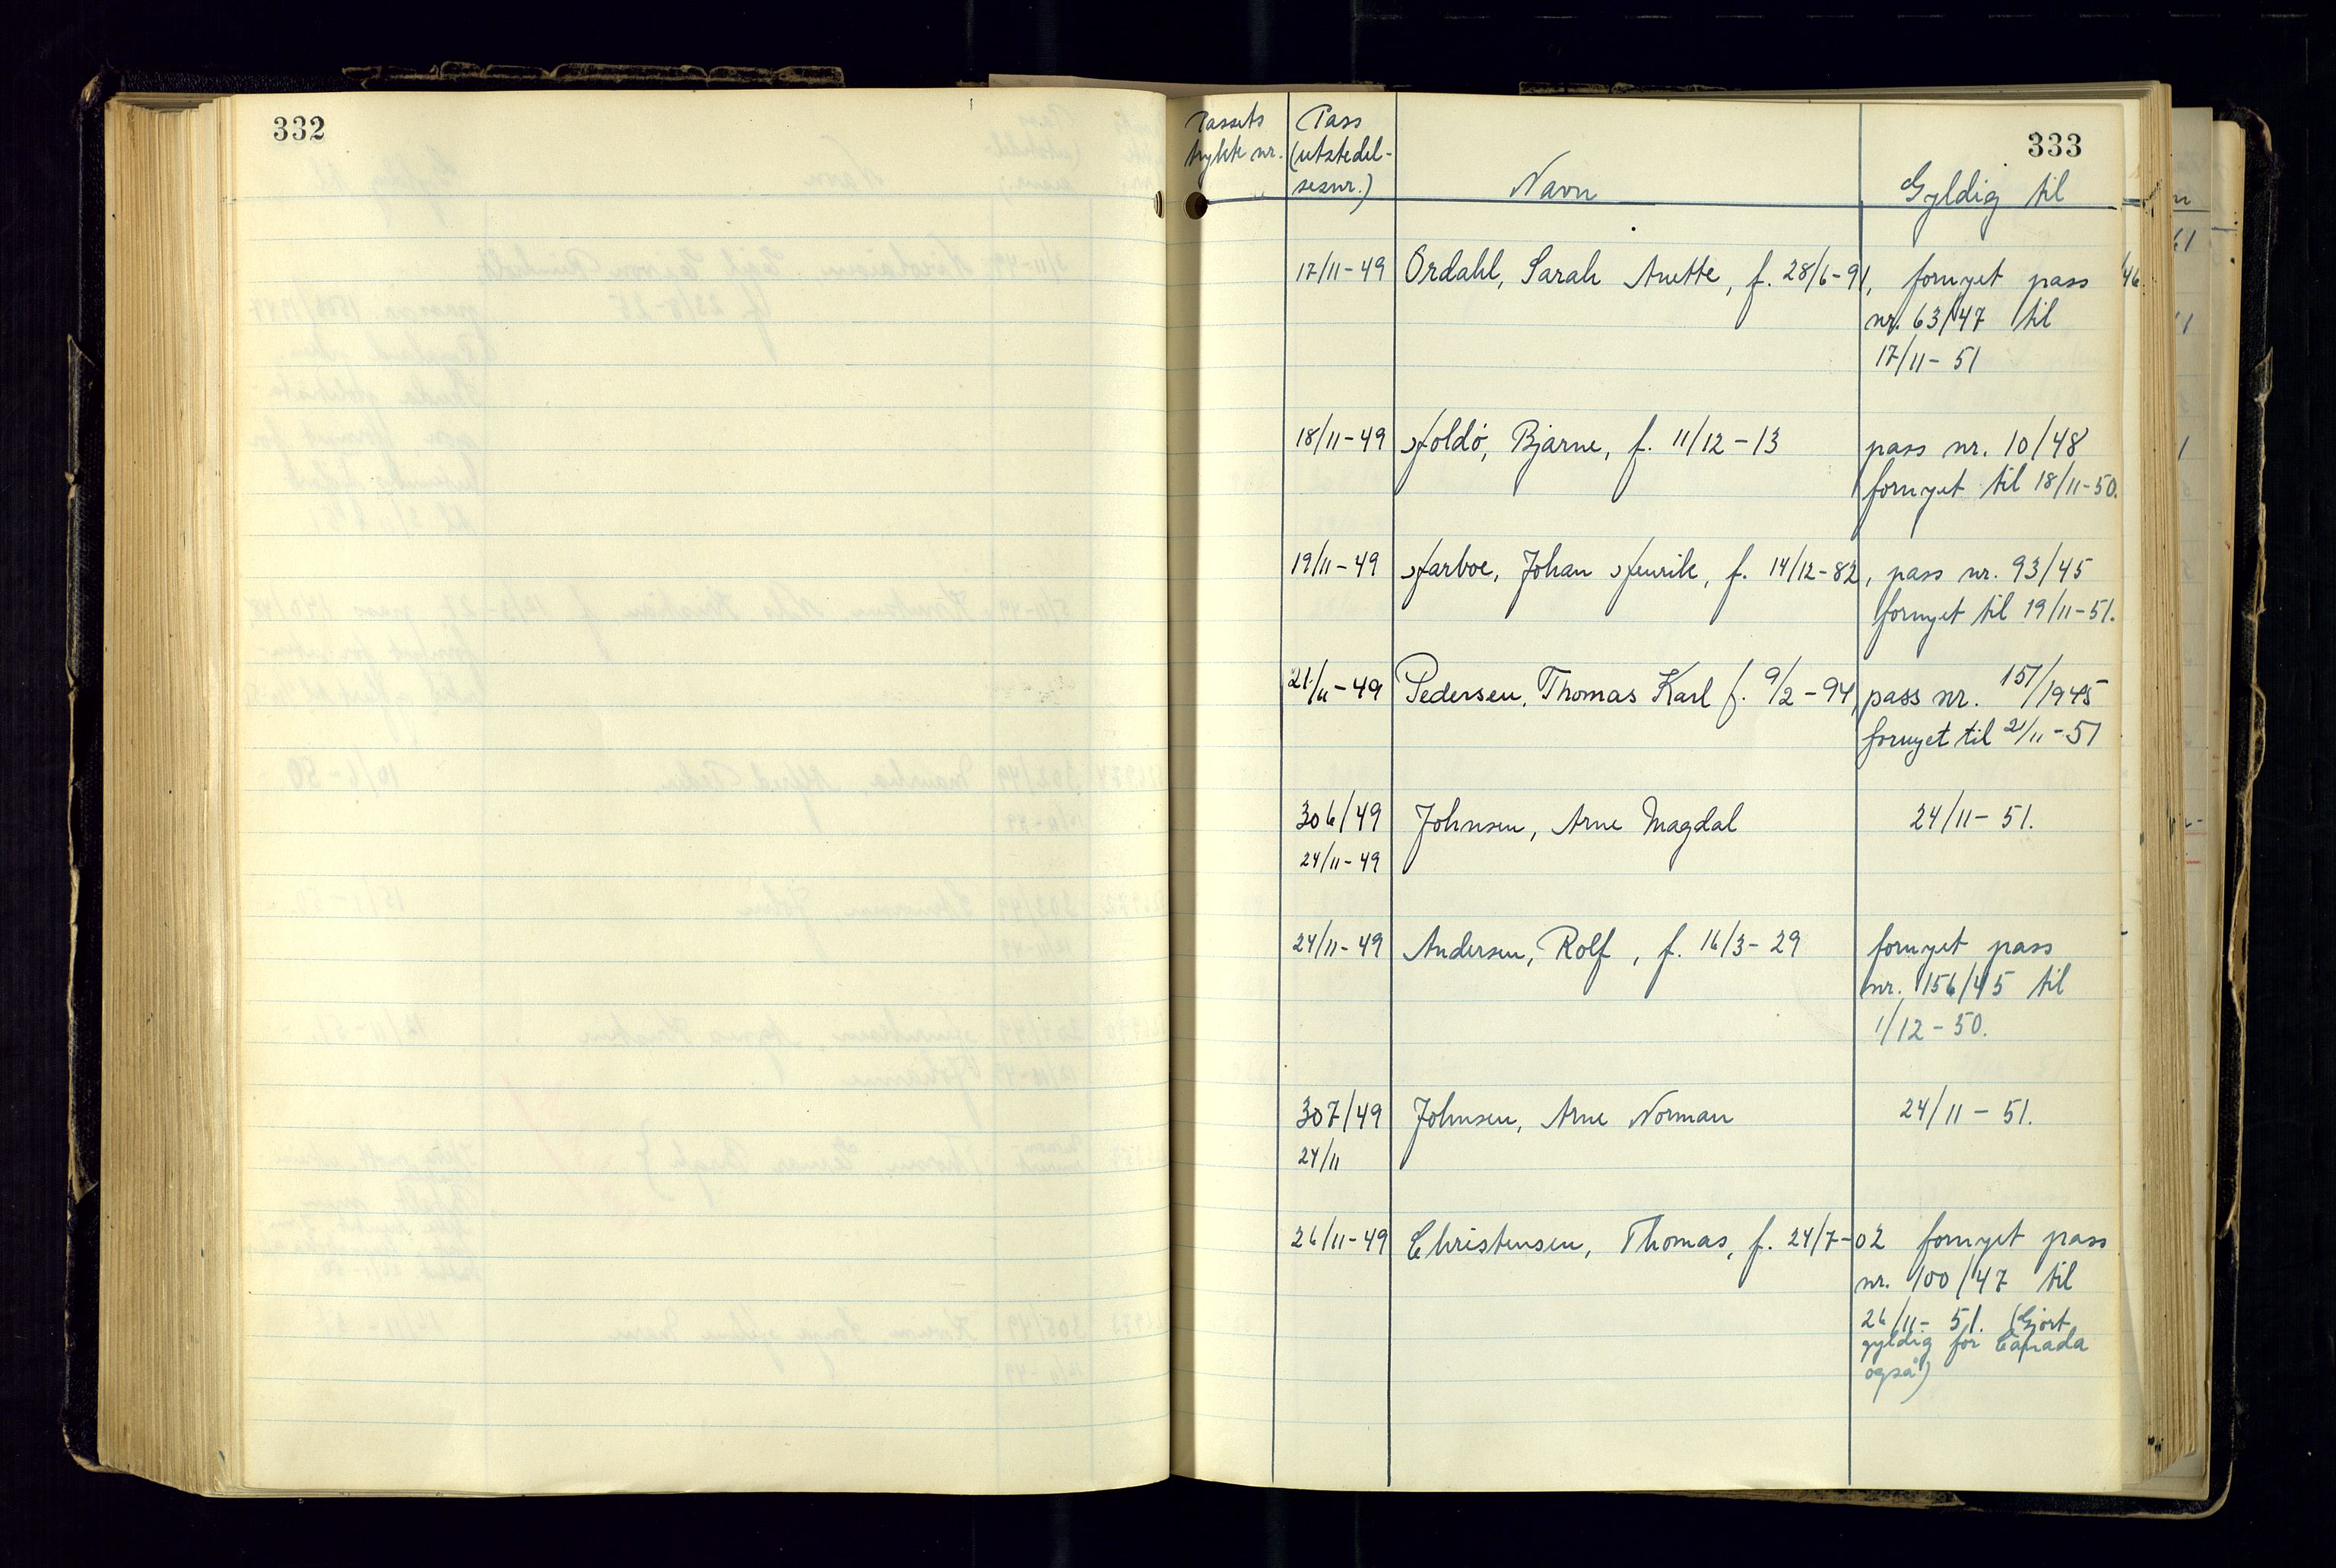 332
333
Passets trykte nr.
Pass (utstedelsesnr.)
Navn
Gyldig til
17/11-49 Ørdahl, Sarah Anette, f. 28/6-91, fornyet pass
nr. 63/47 til
17/11-51
18/11-49 Holdø, Bjarne, f. 11/12-13 pass nr. 10/48
fornyet til 18/11-50.
19/11-49 Harboe, Johan Henrik, f. 14/12-82, pass nr. 93/45
fornyet til 19/11-51.
21/11-49 Pedersen, Thomas Karl f. 9/2-94, pass nr. 151/1945
fornyet til 21/11-51
306/49 Johnsen, Arne Magdal 24/11-51.
24/11-49
24/11-49 Andersen, Rolf, f. 16/3-29 fornyet pass
nr. 156/45 til
1/12-50.
307/49 Johnsen, Arne Norman 24/11-51.
24/11
26/11-49 Christensen, Thomas, f. 24/7-02 fornyet pass
nr. 100/47 til
26/11-51. (Gjort
gyldig for Canada
også)